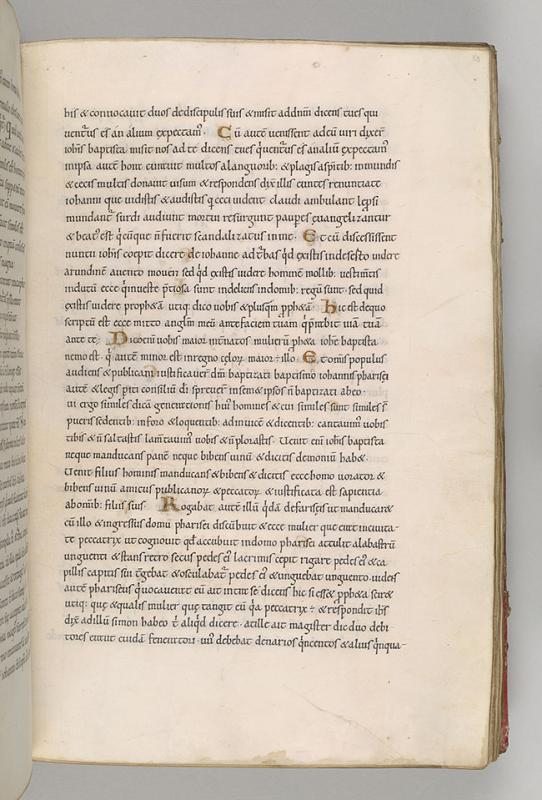 his & conuocauit duos dediscipulis suis & misit addnm̄ dicens tues qui
uent᷑us es̄ an alium expectam᷑. Cū autē uenissent adeū uiri dixer̄
ioh̄s baptista misit nos ad te dicens tues q̄uent᷑us es̄ analiū expectam᷑
inipsa autē hora curauit multos alanguorib: & plagis &sp̄itib: inmundis
& cecis multis donauit uisum & respondens dix̄ illis euntes renuntiate
iohanni que uidistis & audistis q̄ ceci uident claudi ambulant lep̄si
mundant᷑ surdi audiunt mortui resurgunt paup̄es euangelizantur
& beat᷑ est q̄cūque n̄ fuerit scandalizatus in me. Et cū discessissent
nuntii ioh̄is coepit dicere de iohanne ad t᷑bas q̄d existis indesertū uidere
arundinē auento moueri sed q̄d existis uidere hominē mollib: uestim̄tis
indutū ecce q̄inueste p̄tiosa sunt indeliciis indomib: regū sunt. sed quid
existis uidere proph&ā utiq: dico uobis & plusq̄m pph&ā. hic est dequo
scriptū est ecce mitto anglm̄ meū antefaciem tuam q̄p̄parabit uiā tuā
ante te. Dico eni uobis maior int᷑natos mulierū proph&a ioh̄e baptista
nemo est. q̄ autē minor est inregno celoꝝ maior ÷ illo. Et om̄is populus
audiens & publicani iustificauer̄ dm̄ baptizati baptismo iohannis pharisei
autē & legis p̄iti consiliū di spreuer̄ insem&ipsos n̄ baptizati abeo.
ui ergo similes dicā generationis hui᷑ homines & cui similes sunt similes s̄
pueris sedentib: inforo & loquentib: adinuicē & dicentib: cantauim᷑ uobis
tibiis & n̄ saltastis lam̄tauim᷑ uobis & n̄ plorastis. Uenit eni iohs̄ baptista
neque manducans panē neque bibens uinū & dicitis demoniū hab&.
Uenit filius hominis manducans & bibens & dicitis ecce homo uorator &
bibens uinū amicus publicanoꝝ & peccatoꝝ & iustificata est sapientia
abomīb: filiis suis. Rogabat autē illū q̄dā defariseis ut manducar&
cū illo & ingressus domū pharisei discubuit & ecce mulier que erat inciuita-
te peccatrix ut cognouit qd̄ accubuit indomo pharisei attulit alabastrū
unguenti & stans retro secus pedes ei᷑ lacrimis cepit rigare pedes ei᷑ & ca
pillis capitis sui t᷑gebat & osculabat᷑ pedes ei᷑ & unguebat unguento. uidens
autē phariseus q̄uocauerat eū ait intra se dicens hic si ess& pph&a scir&
utiq: que & qualis mulier que tangit eū q̄a peccatrix ÷. & respondit ih̄s
dix̄ adillū simon habeo t̄ aliq̄d dicere. atille ait magister dic duo debi-
tores erant cuidā feneratori. un᷑ debebat denarios q̄ngentos & alius q̄nqua-